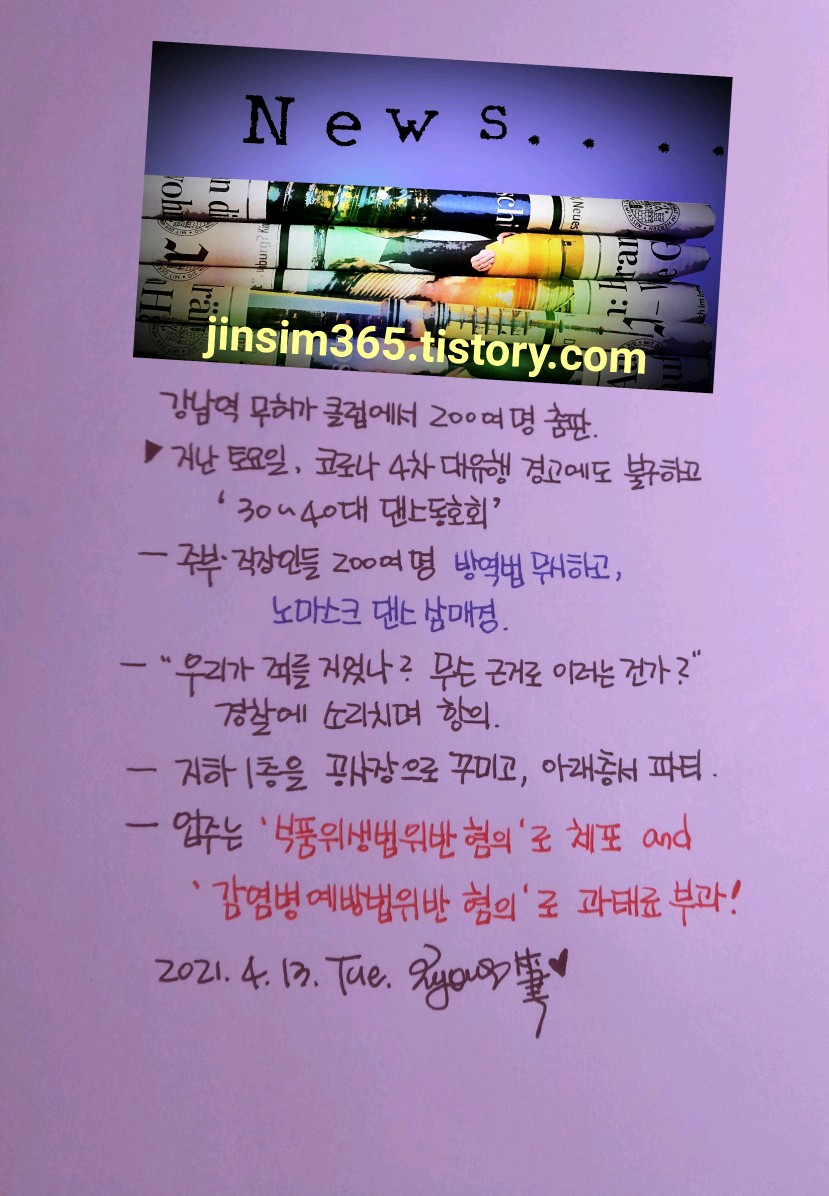 News....
jinsim365.tistory.com
강남역 무허가 클럽에서 200여 명 춤판.
▶ 지난 토요일, 코로나 4차 대유행 경고에도 불구하고
‘30~40대 댄스동호회’
- 주부·직장인들 200여 명 방역법 무시하고,
노마스크 댄스 삼매경.
- "우리가 죄를 지었나? 무슨 근거로 이러는 건가?"
경찰에 소리치며 항의.
- 지하 1층을 공사장으로 꾸미고, 아래층서 파티.
- 업주는 '식품위생법위반 혐의'로 체포 and
'감염병예방법위반 혐의'로 과태료 부과!
2021. 4. 13. Tue. 筆♥